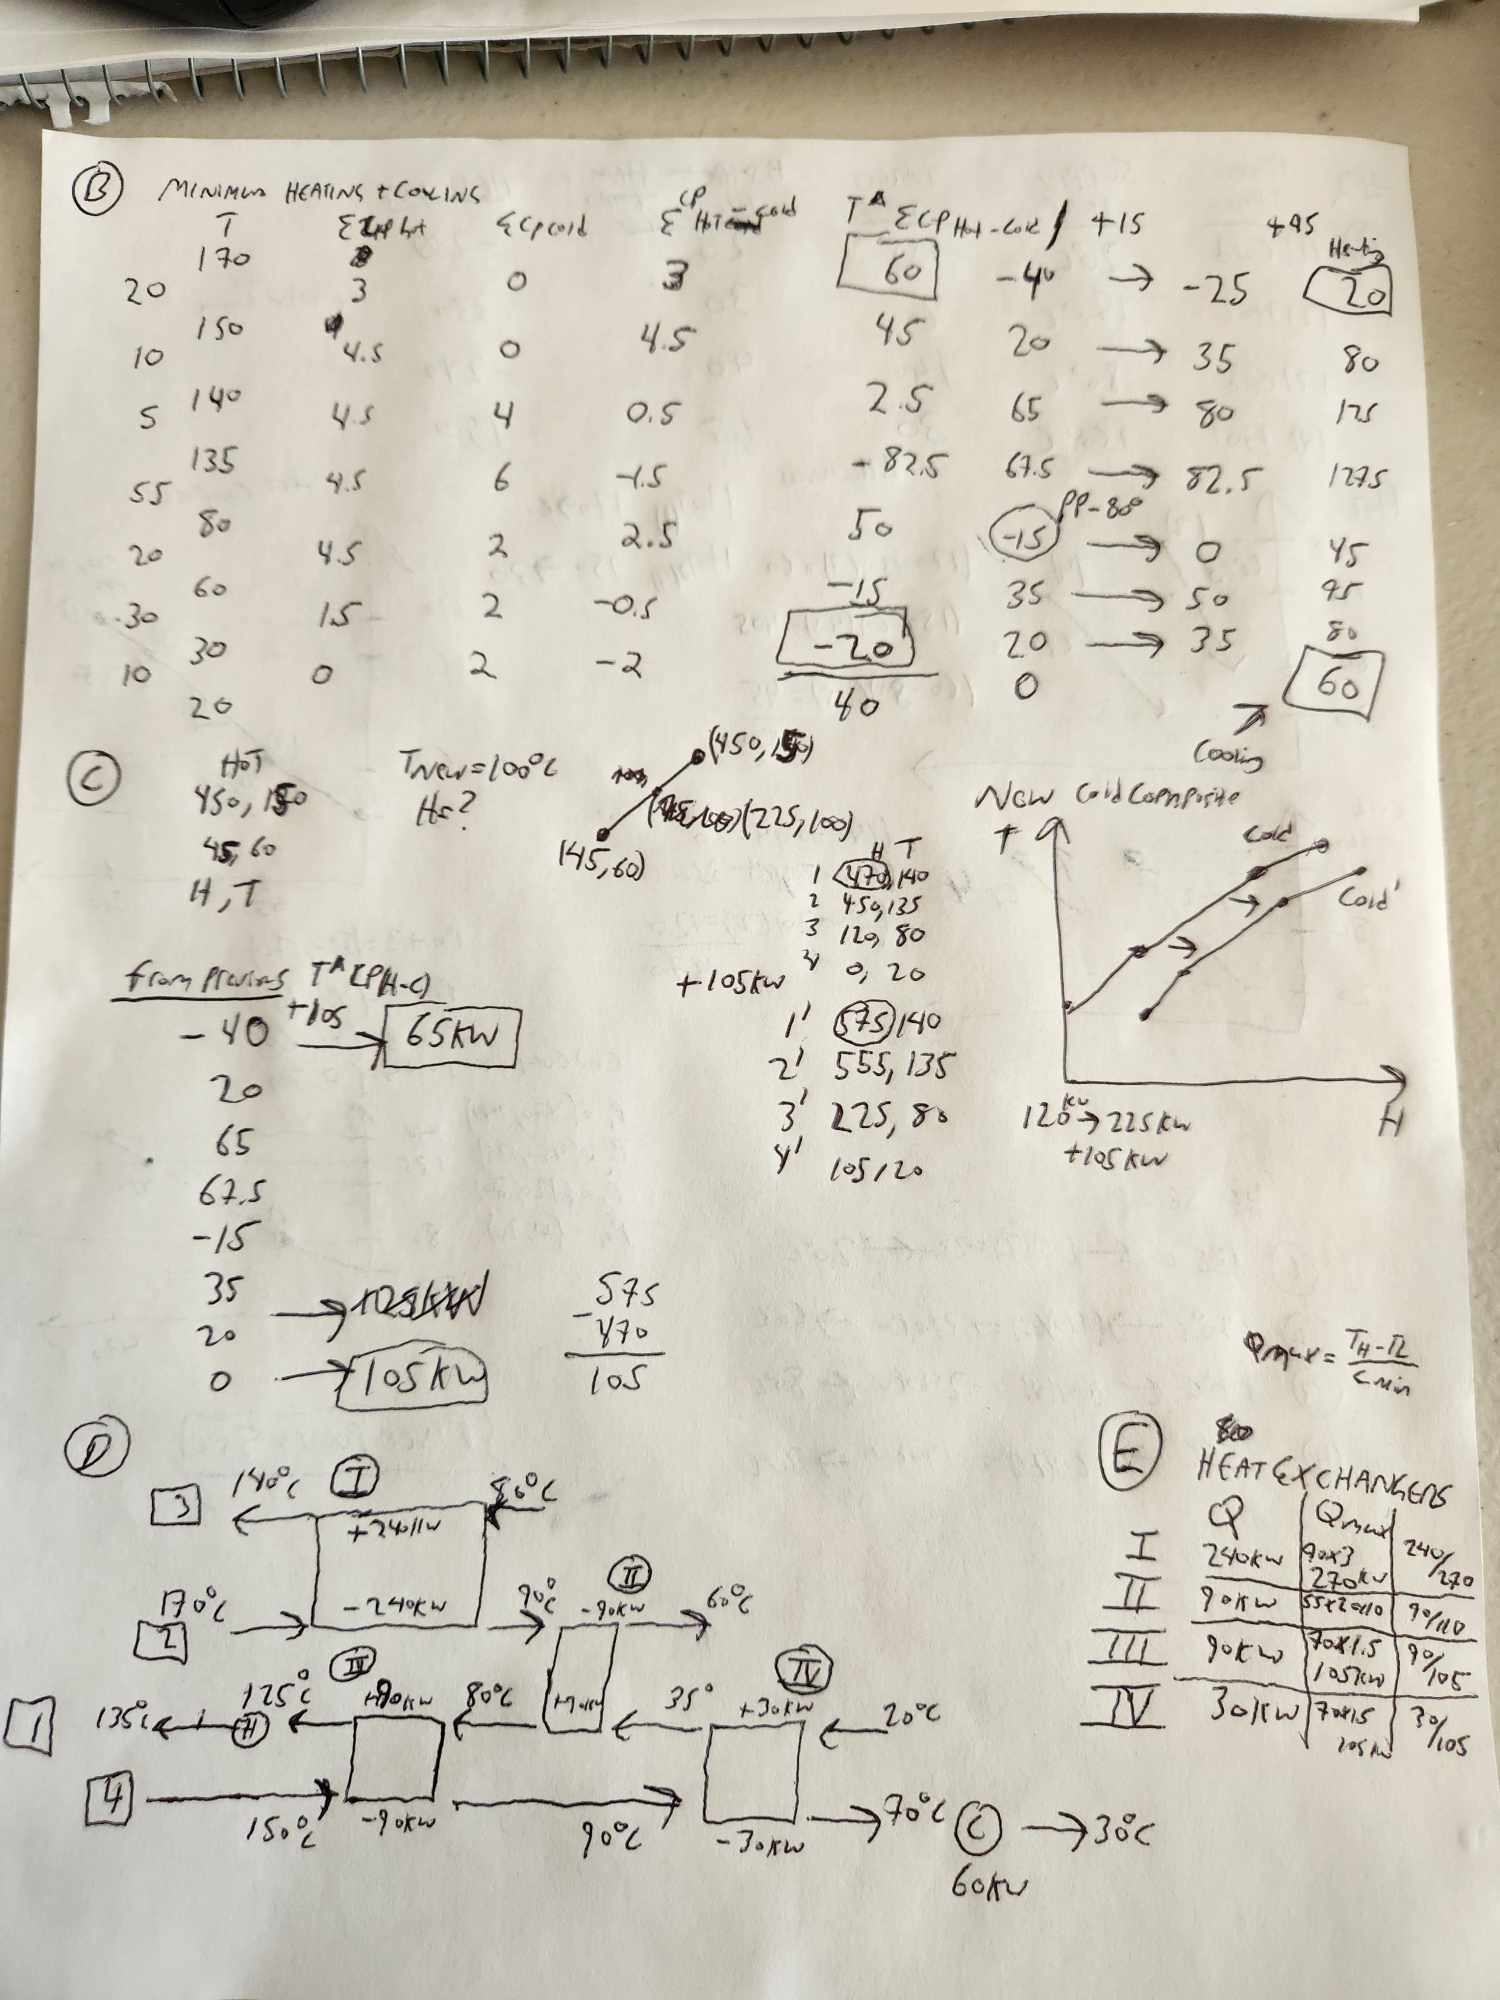 B MINIMUM HEATING + COOLING
T ΣCp hot ΣCp cold ΣCP Hot-cold TΔ ΣCP Hot-cold +15 +45 Heating
170 60 -40 → -25 20
20 3 0 3
150 45 20 → 35 80
10 4.5 0 4.5
140 2.5 65 → 80 125
5 4.5 4 0.5
135 -82.5 67.5 → 82.5 127.5
55 4.5 6 -1.5
PP-80°
80 50 -15 → 0 45
20 4.5 2 2.5
60 -15 35 → 50 95
30 1.5 2 -0.5
30 -20 20 → 35 80
10 0 2 -2
20 40 0 60
Cooling
C HOT
450, 150
45, 60
H, T
TNew=100°C
H=?
(450, 150)
(225, 100)
(45, 60)
H T
1 470, 140
2 450, 135
3 120, 80
4 0, 20
+105KW
1' 575, 140
2' 555, 135
3' 225, 80
4' 105, 20
New Cold Composite
T
Cold
Cold'
H
120KW → 225KW
+105KW
from previous TΔ CP(H-C)
-40 +105 → 65KW
20
65
67.5
-15
35 →
20
0 → 105KW
575
- 470
105
Qmax = TH-TL / Cmin
D
3 140°C I 80°C
+240KW
II
170°C -240KW 90°C -90KW 60°C
2
III IV
1 135°C H 125°C +90KW 80°C +90KW 35° +30KW 20°C
4 150°C -90KW 90°C -30KW 70°C C 30°C
60KW
E HEAT EXCHANGERS
Q Qmax
I 240KW 90x3 270KW 240/270
II 90KW 55x2 110 90/110
III 90KW 70x1.5 105KW 90/105
IV 30KW 70x1.5 105KW 30/105